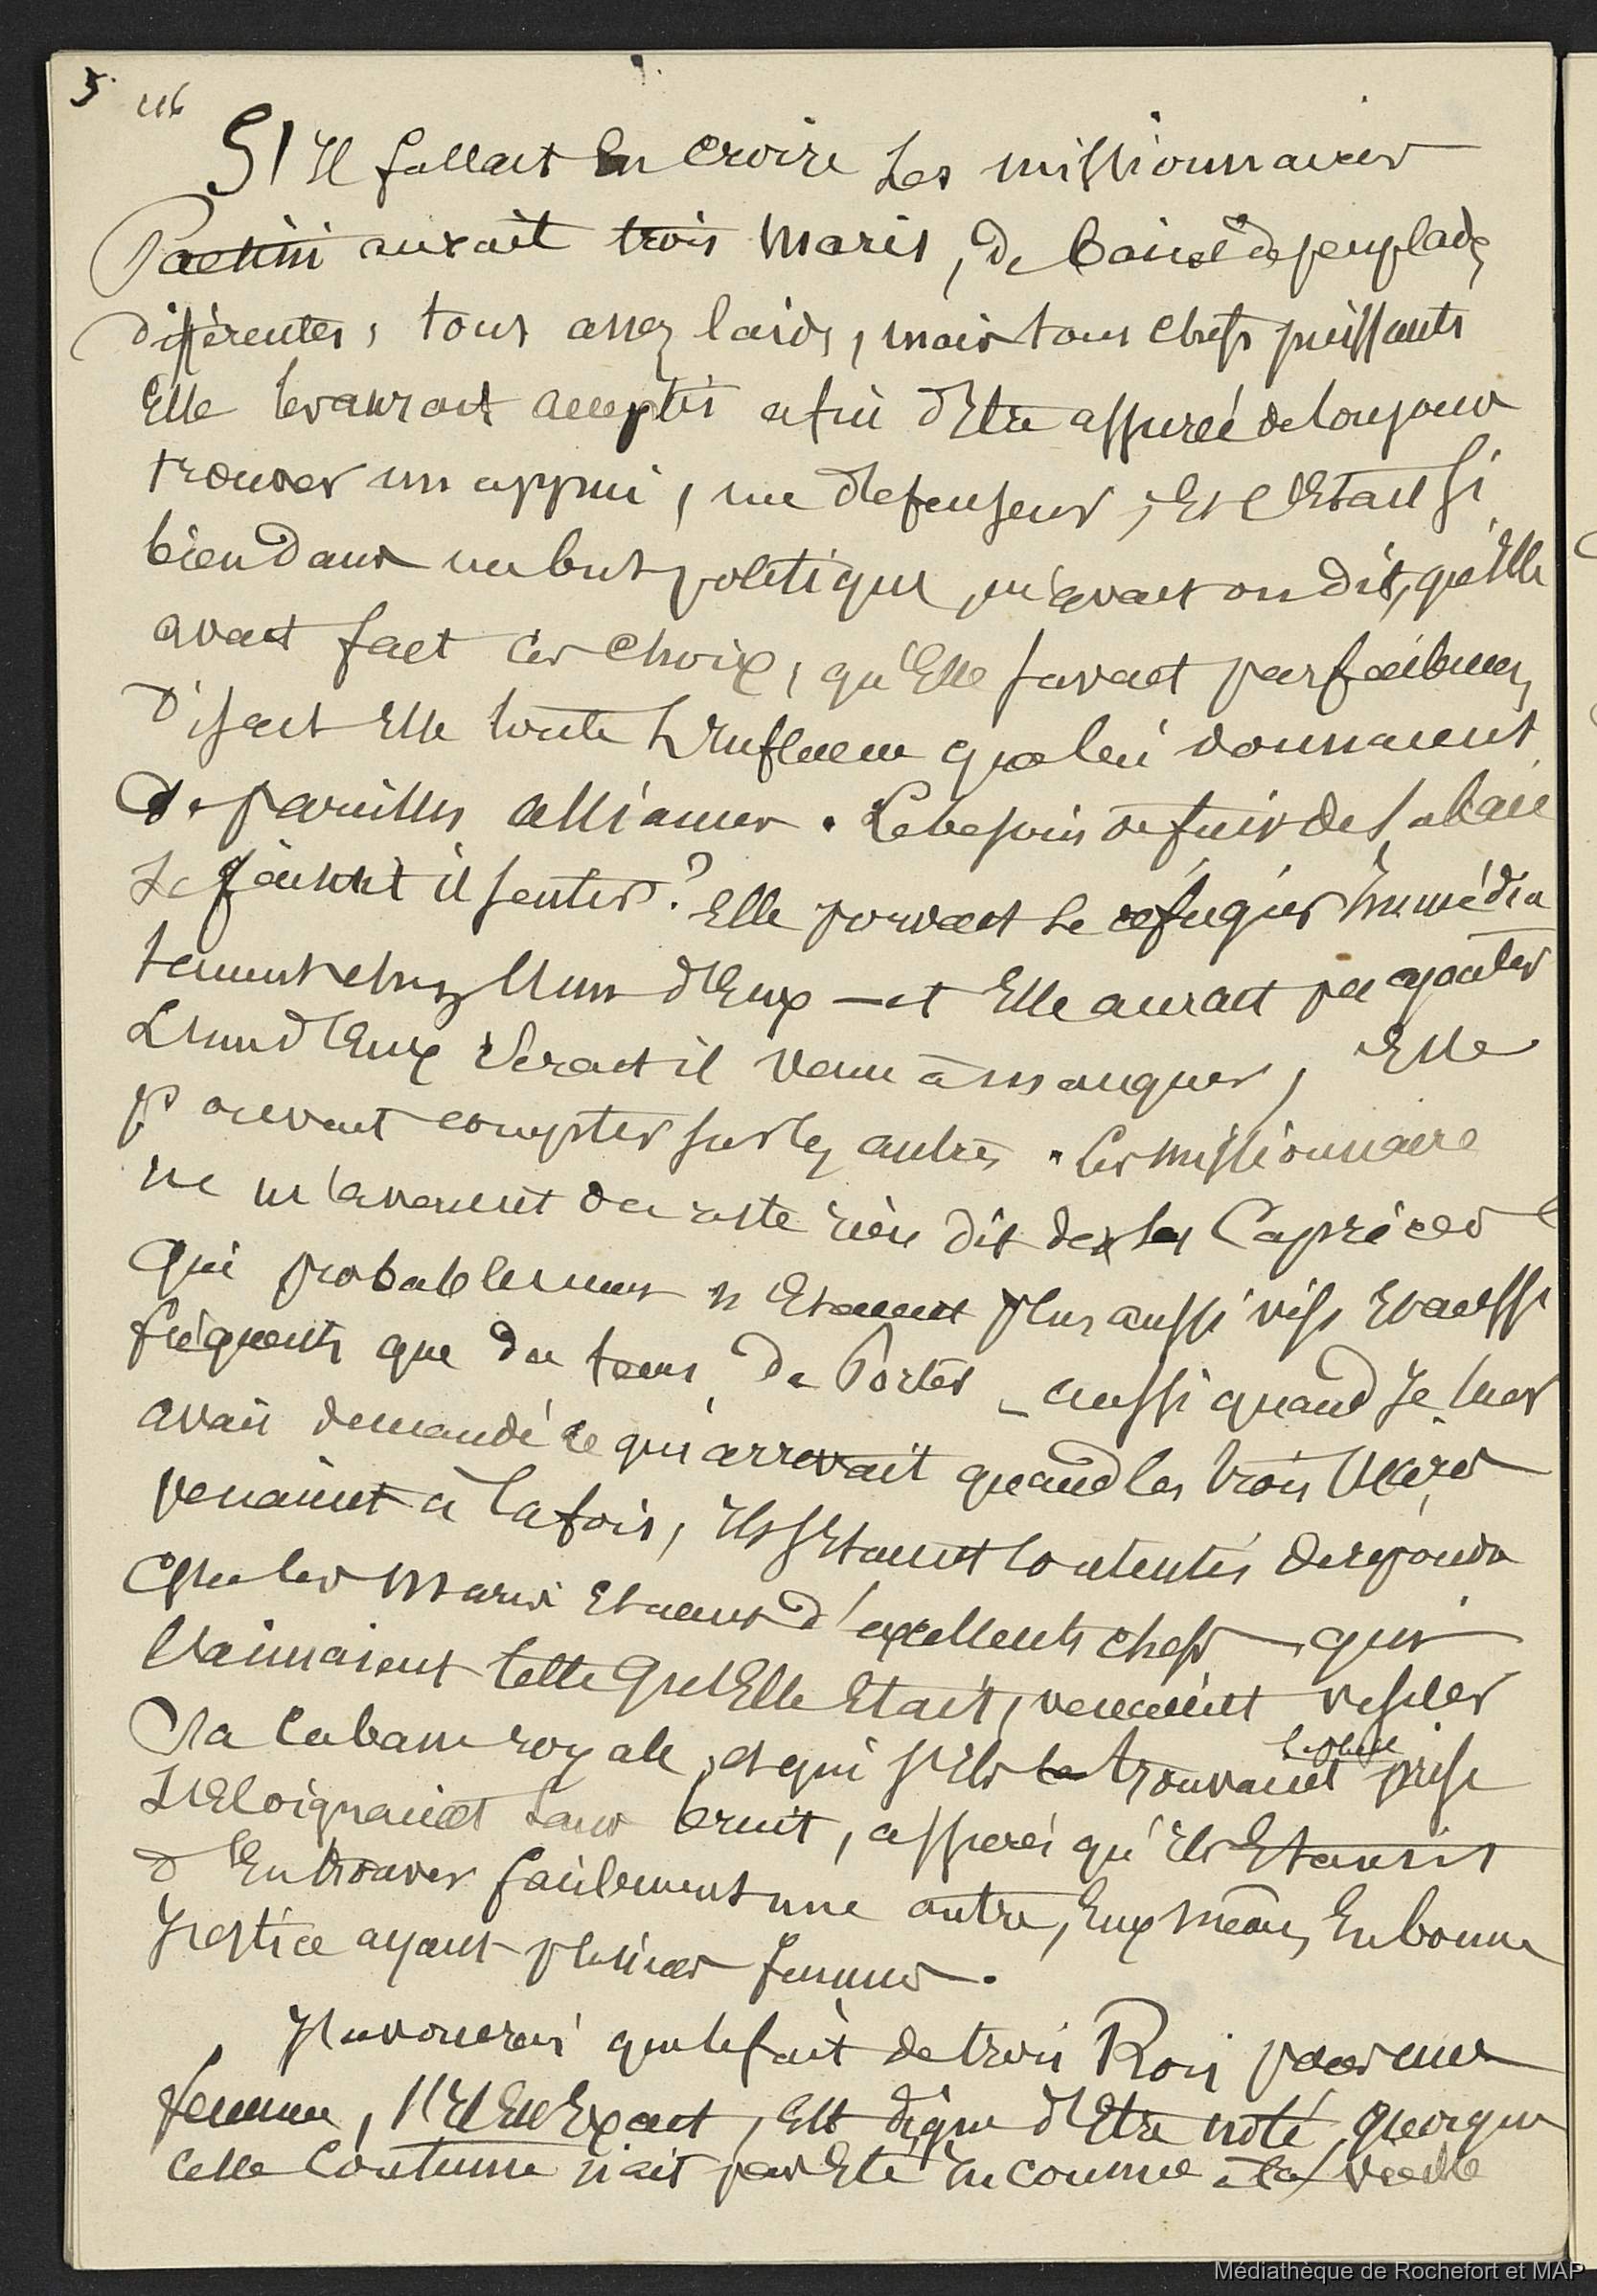 5. 416
S'Il fallait En croire Les missionnaires
Paetini aurait trois Maris, de baies & de peuplades
différentes, tous assez laids, mais tous chefs puissants
Elle les aurait acceptés afin d'Etre assurée de toujours
trouver un appui, un defenseur, Et c'Etait si
bien dans un but politique, m'avait on dit, qu'Elle
avait fait ces choix, qu'Elle savait parfaitement,
disait Elle toute L'Influence que lui donnaient
de pareilles alliances. Le besoin de fuir de sa baie
se faisait il sentir? Elle pouvait se réfugier Immédia
tement chez l'Un d'Eux — et Elle aurait pu ajouter
L'un d'Eux serait il venu à manquer, Elle
pouvait compter sur les autres. Les missionnaires
ne m'avaient du reste rien dit de ses Caprices
Qui probablement n'Etaient plus aussi vifs Et aussi
fréquents que du tems de Porter _ aussi quand Je leur
avais demandé ce qui arrivait quand les trois Maris
venaient à la fois, Ils s'Etaient contentés de répondre
Que les Maris Etaient d'excellents chefs qui
l'aimaient telle Qu'Elle Etait, venaient visiter
Sa cabane royale, et qui s'Ils trouvaient la place prise
S'Eloignaient sans bruit, assurés qu'Ils Etaient
d'En trouver facilement une autre, Eux mêmes, En bonne
Justice ayant plusieurs femmes.
J'avouerai que le fait de trois Rois pour une
femme, s'Il Est Exact, Est digne d'Etre noté, Quoique
cette Coutume n'ait pas Eté Inconnue à la vieille
Médiathèque de Rochefort et MAP